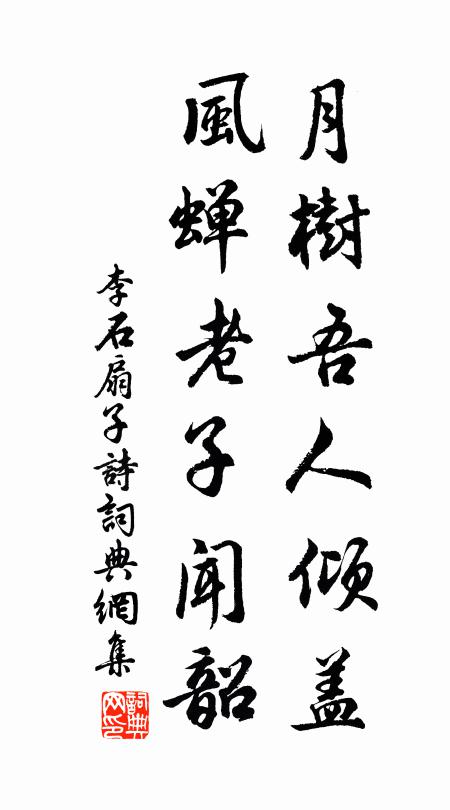 月樹吾人傾盖
風蝉老子聞韶
李石扇子詩詞典網集
詞典網印